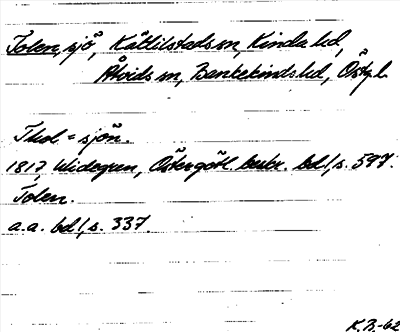 Tolen, sjö, Kättilstads sn, Kinda hd,
Åtvids sn, Bankekinds hd, Östg. l.
Thol = sjön.
1817 Widegren, Östergötl. beskr. bd 1, s. 597.
Tolen.
a.a. bd 1, s. 337.
K.B.-62